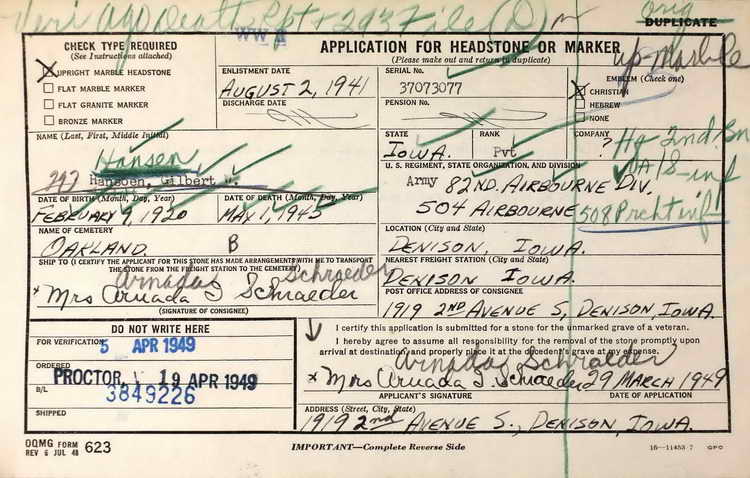 Veri Ago Death Rpt + 293 File (D)
orig
WW II
DUPLICATE
CHECK TYPE REQUIRED
(See Instructions attached)
UPRIGHT MARBLE HEADSTONE
FLAT MARBLE MARKER
FLAT GRANITE MARKER
BRONZE MARKER
APPLICATION FOR HEADSTONE OR MARKER
(Please make out and return in duplicate)
up-Marble
ENLISTMENT DATE
AUGUST 2, 1941
DISCHARGE DATE
SERIAL No.
37073077
PENSION No.
EMBLEM (Check one)
CHRISTIAN
HEBREW
NONE
NAME (Last, First, Middle Initial)
Hansen
293 Hansoen, Gilbert W.
STATE
IOWA.
RANK
Pvt
COMPANY
? Hq 2nd. Bn
U.S. REGIMENT, STATE ORGANIZATION, AND DIVISION
Army 82ND. AIRBOURNE DIV.
504 AIRBOURNE 508 Prcht inf
DATE OF BIRTH (Month, Day, Year)
FEBRUARY 9, 1920
DATE OF DEATH (Month, Day, Year)
MAY 1, 1945
NAME OF CEMETERY
OAKLAND B
LOCATION (City and State)
DENISON, IOWA.
SHIP TO (I CERTIFY THE APPLICANT FOR THIS STONE HAS MADE ARRANGEMENTS WITH ME TO TRANSPORT
THE STONE FROM THE FREIGHT STATION TO THE CEMETERY)
Schraeder
* Mrs Schraeder
(SIGNATURE OF CONSIGNEE)
NEAREST FREIGHT STATION (City and State)
DENISON IOWA.
POST OFFICE ADDRESS OF CONSIGNEE
1919 2ND AVENUE S, DENISON, IOWA.
DO NOT WRITE HERE
FOR VERIFICATION
5 APR 1949
ORDERED
PROCTOR, 19 APR 1949
B/L
3849226
SHIPPED
I certify this application is submitted for a stone for the unmarked grave of a veteran.
I hereby agree to assume all responsibility for the removal of the stone promptly upon
arrival at destination, and properly place it at the decedent's grave at my expense.
* Mrs Schraeder 29 MARCH 1949
APPLICANT'S SIGNATURE
DATE OF APPLICATION
ADDRESS (Street, City, State)
1919 2nd AVENUE S., DENISON, IOWA.
OQMG FORM
REV 6 JUL 48
623
IMPORTANT—Complete Reverse Side
16—11453-7 GPO